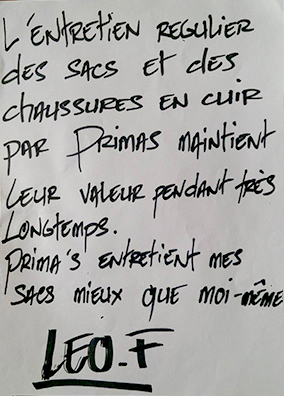 L'ENTRETIEN REGULIER
des SACS ET des
chaussures EN CUIR
PAR PRIMAS MAINTIENT
LEUR VALEUR PENDANT très
LONGTEMPS.
PRIMA'S ENTRETIENT MES
SACS MIEUX QUE MOI-MÊME
LEO.F